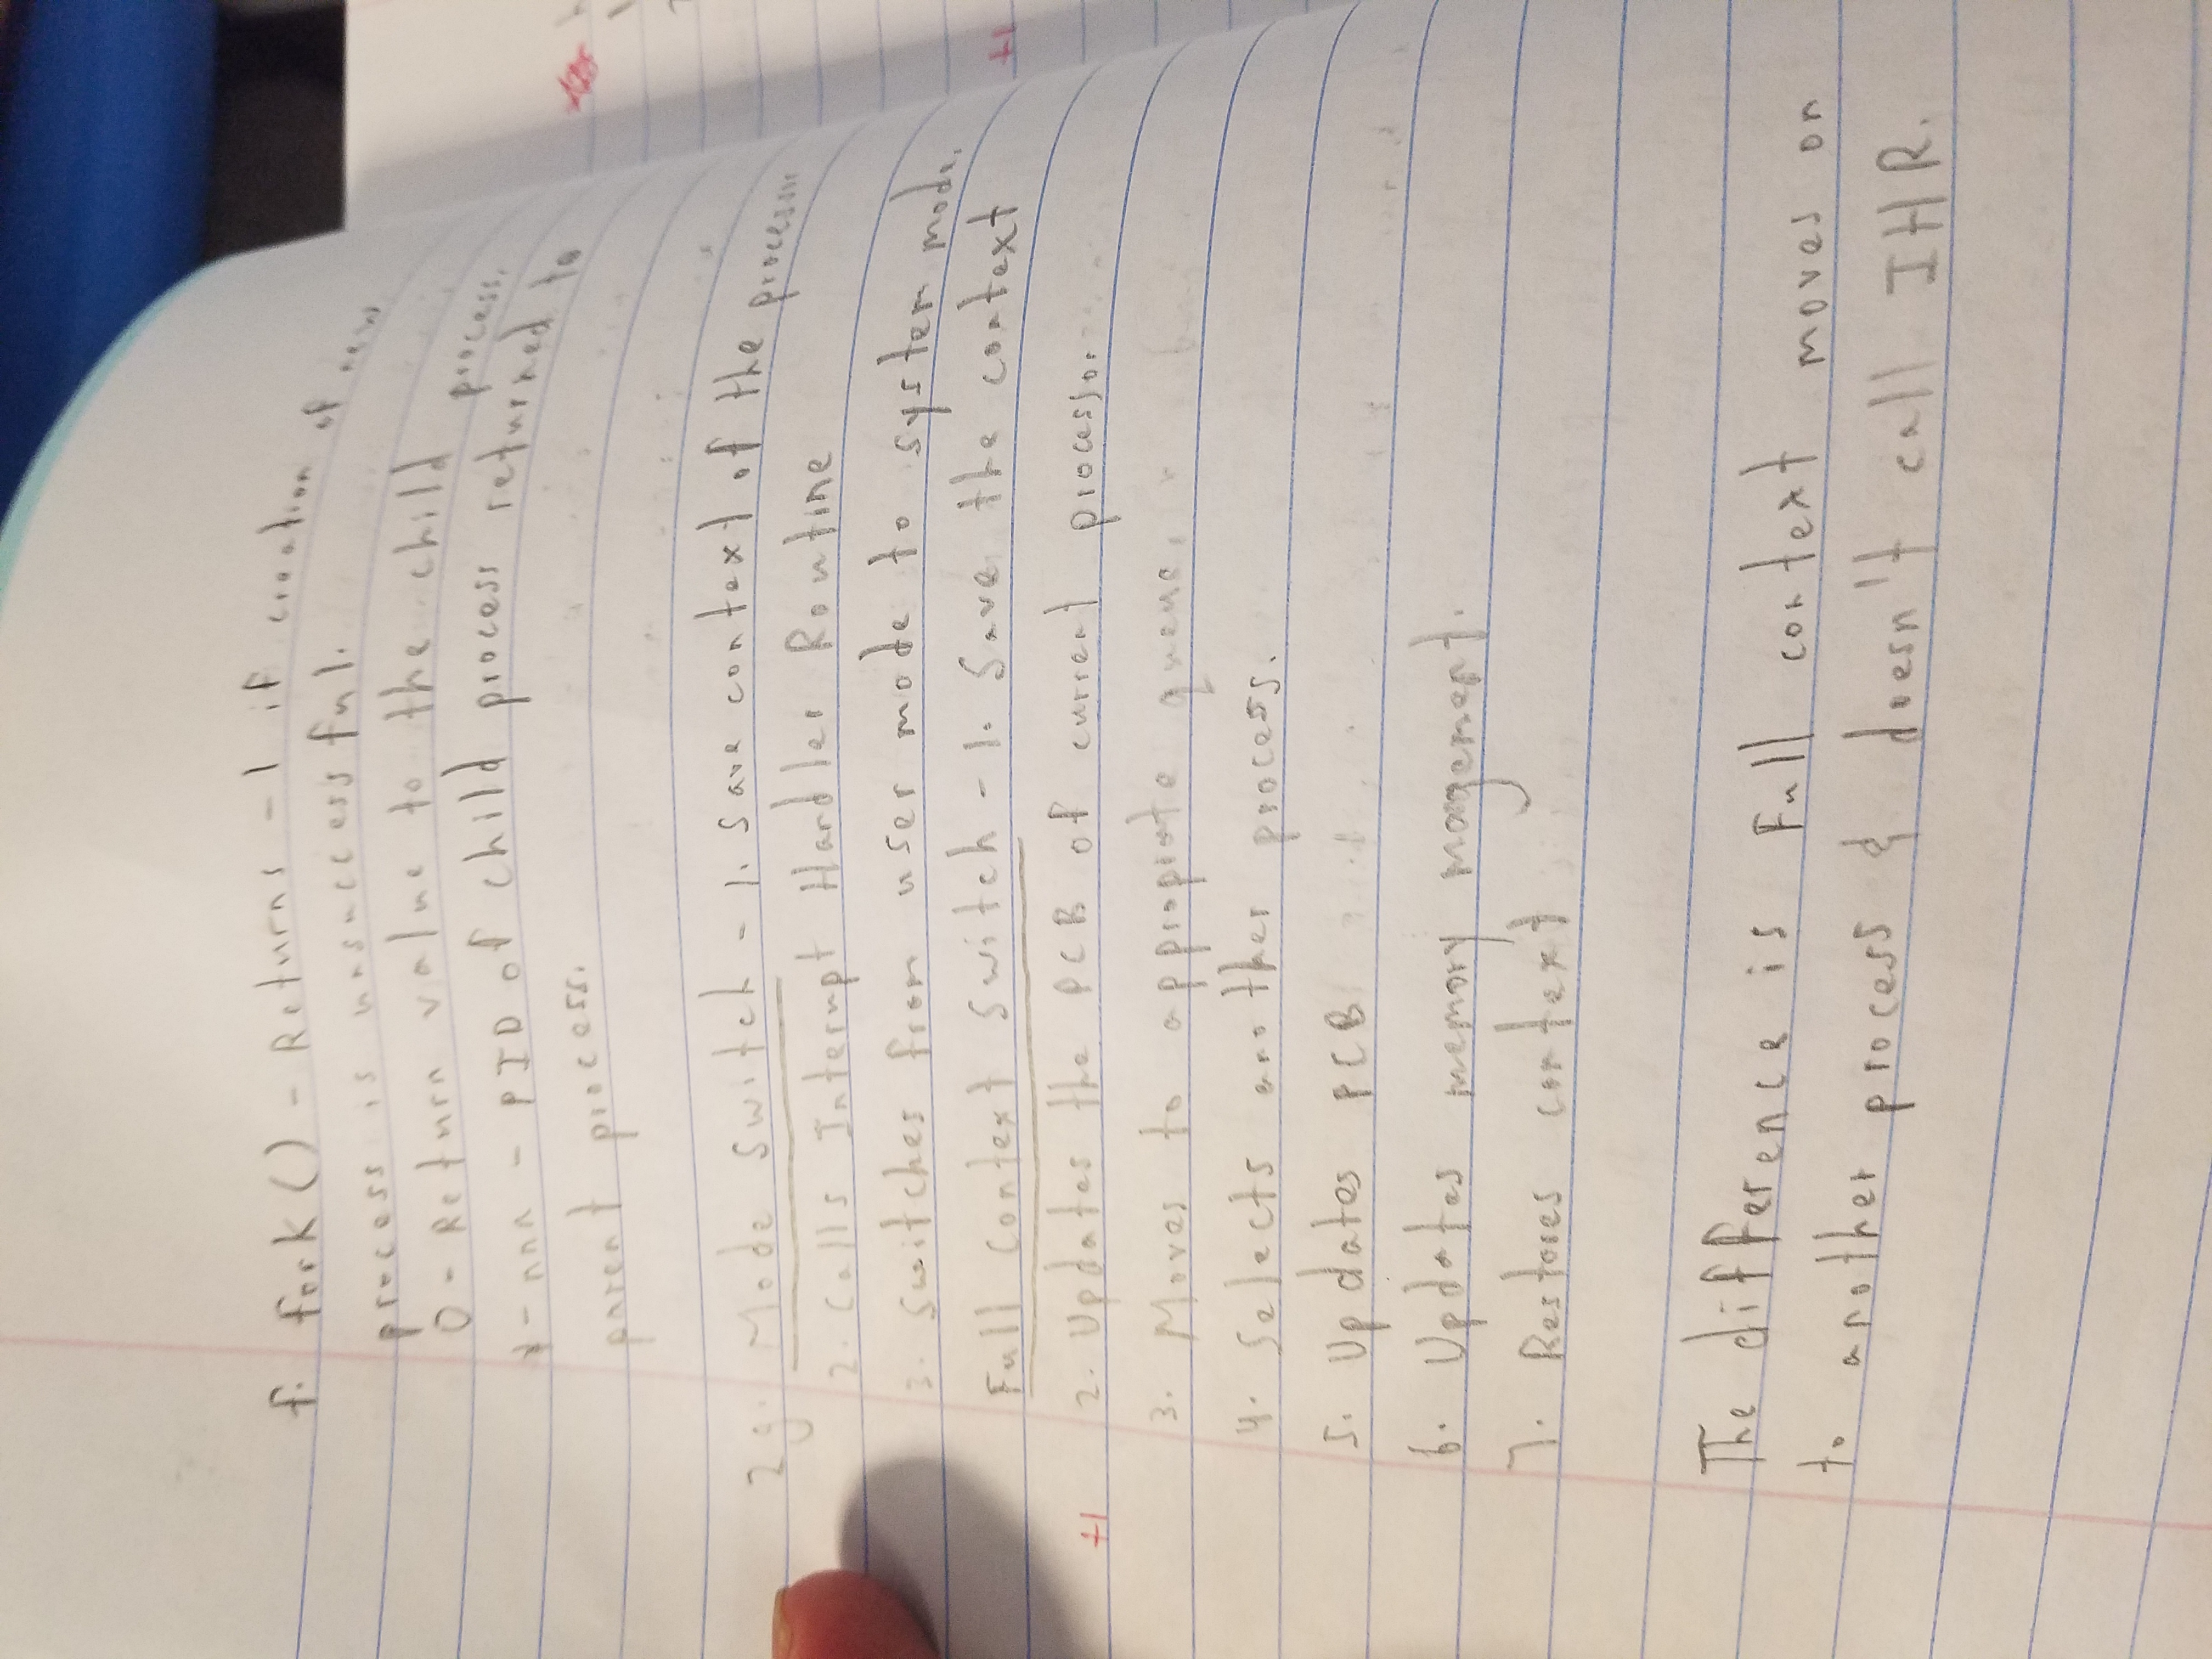 f. fork() - Returns -1 if creation of new
process is unsuccessful.
0 - Return value to the child process.
nnn - PID of child process returned to
parent process.
2g. Mode Switch - 1. Save context of the processor
2. Calls Interupt Handler Routine
3. Switches from user mode to system mode.
Full Context Switch - 1. Save the context
+1
+1 2. Updates the PCB of current processor
3. Moves to appropiate queue.
4. Selects another process.
5. Updates PCB
6. Updates memory magement.
7. Restores context
The difference is Full context moves on
to another process & doesn't call IHR.